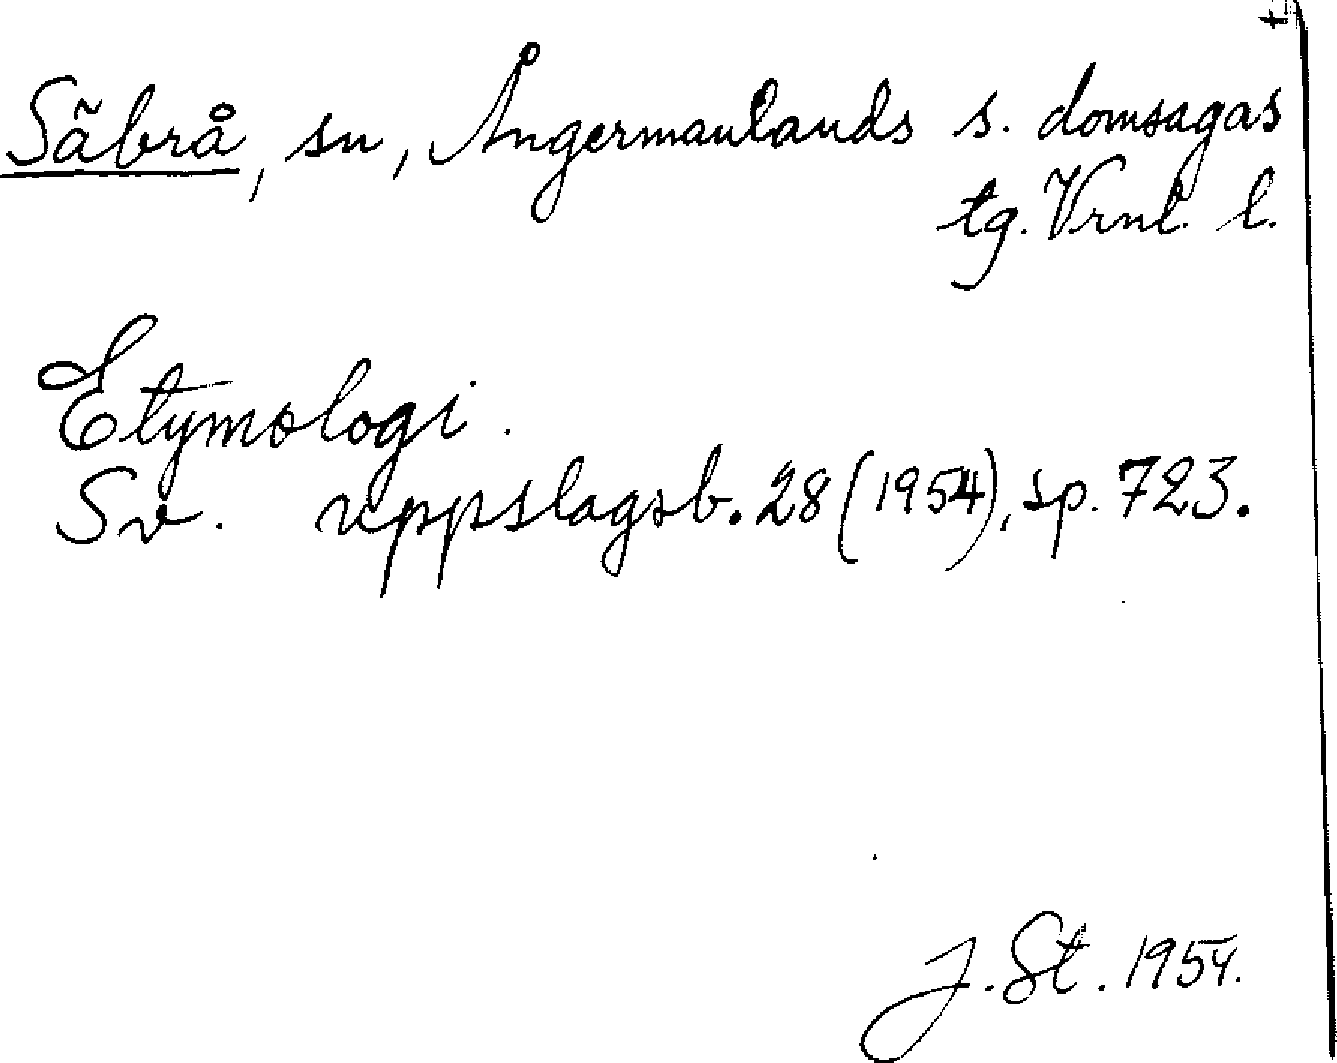 Säbrå, sn, Ångermanlands s. domsagas
tg. Vrnl. l.
Etymologi.
Sv. uppslagsb. 28 (1954), sp. 723.
J. St. 1954.